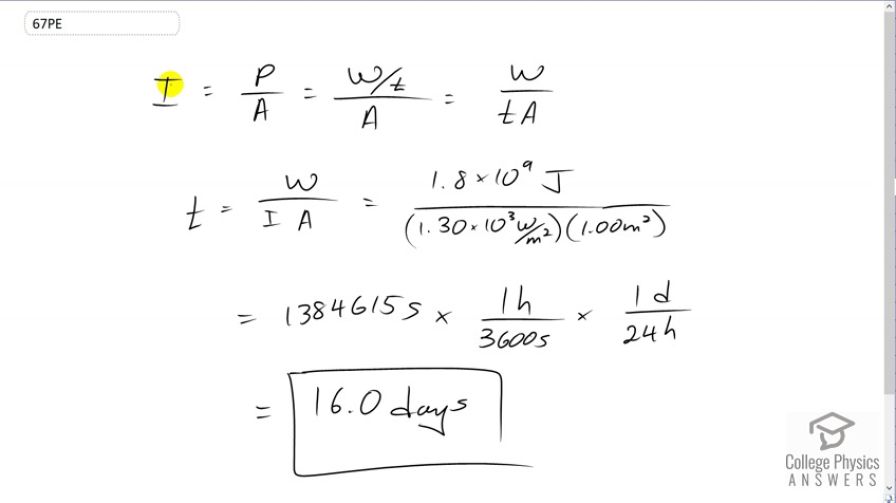 67PE
I = P/A = W/t/A = W/tA
t = W/I A = 1.8×10⁹ J/(1.30×10³W/m²)(1.00m²)
= 1384615s × 1h/3600s × 1d/24h
= 16.0 days
College Physics
ANSWERS